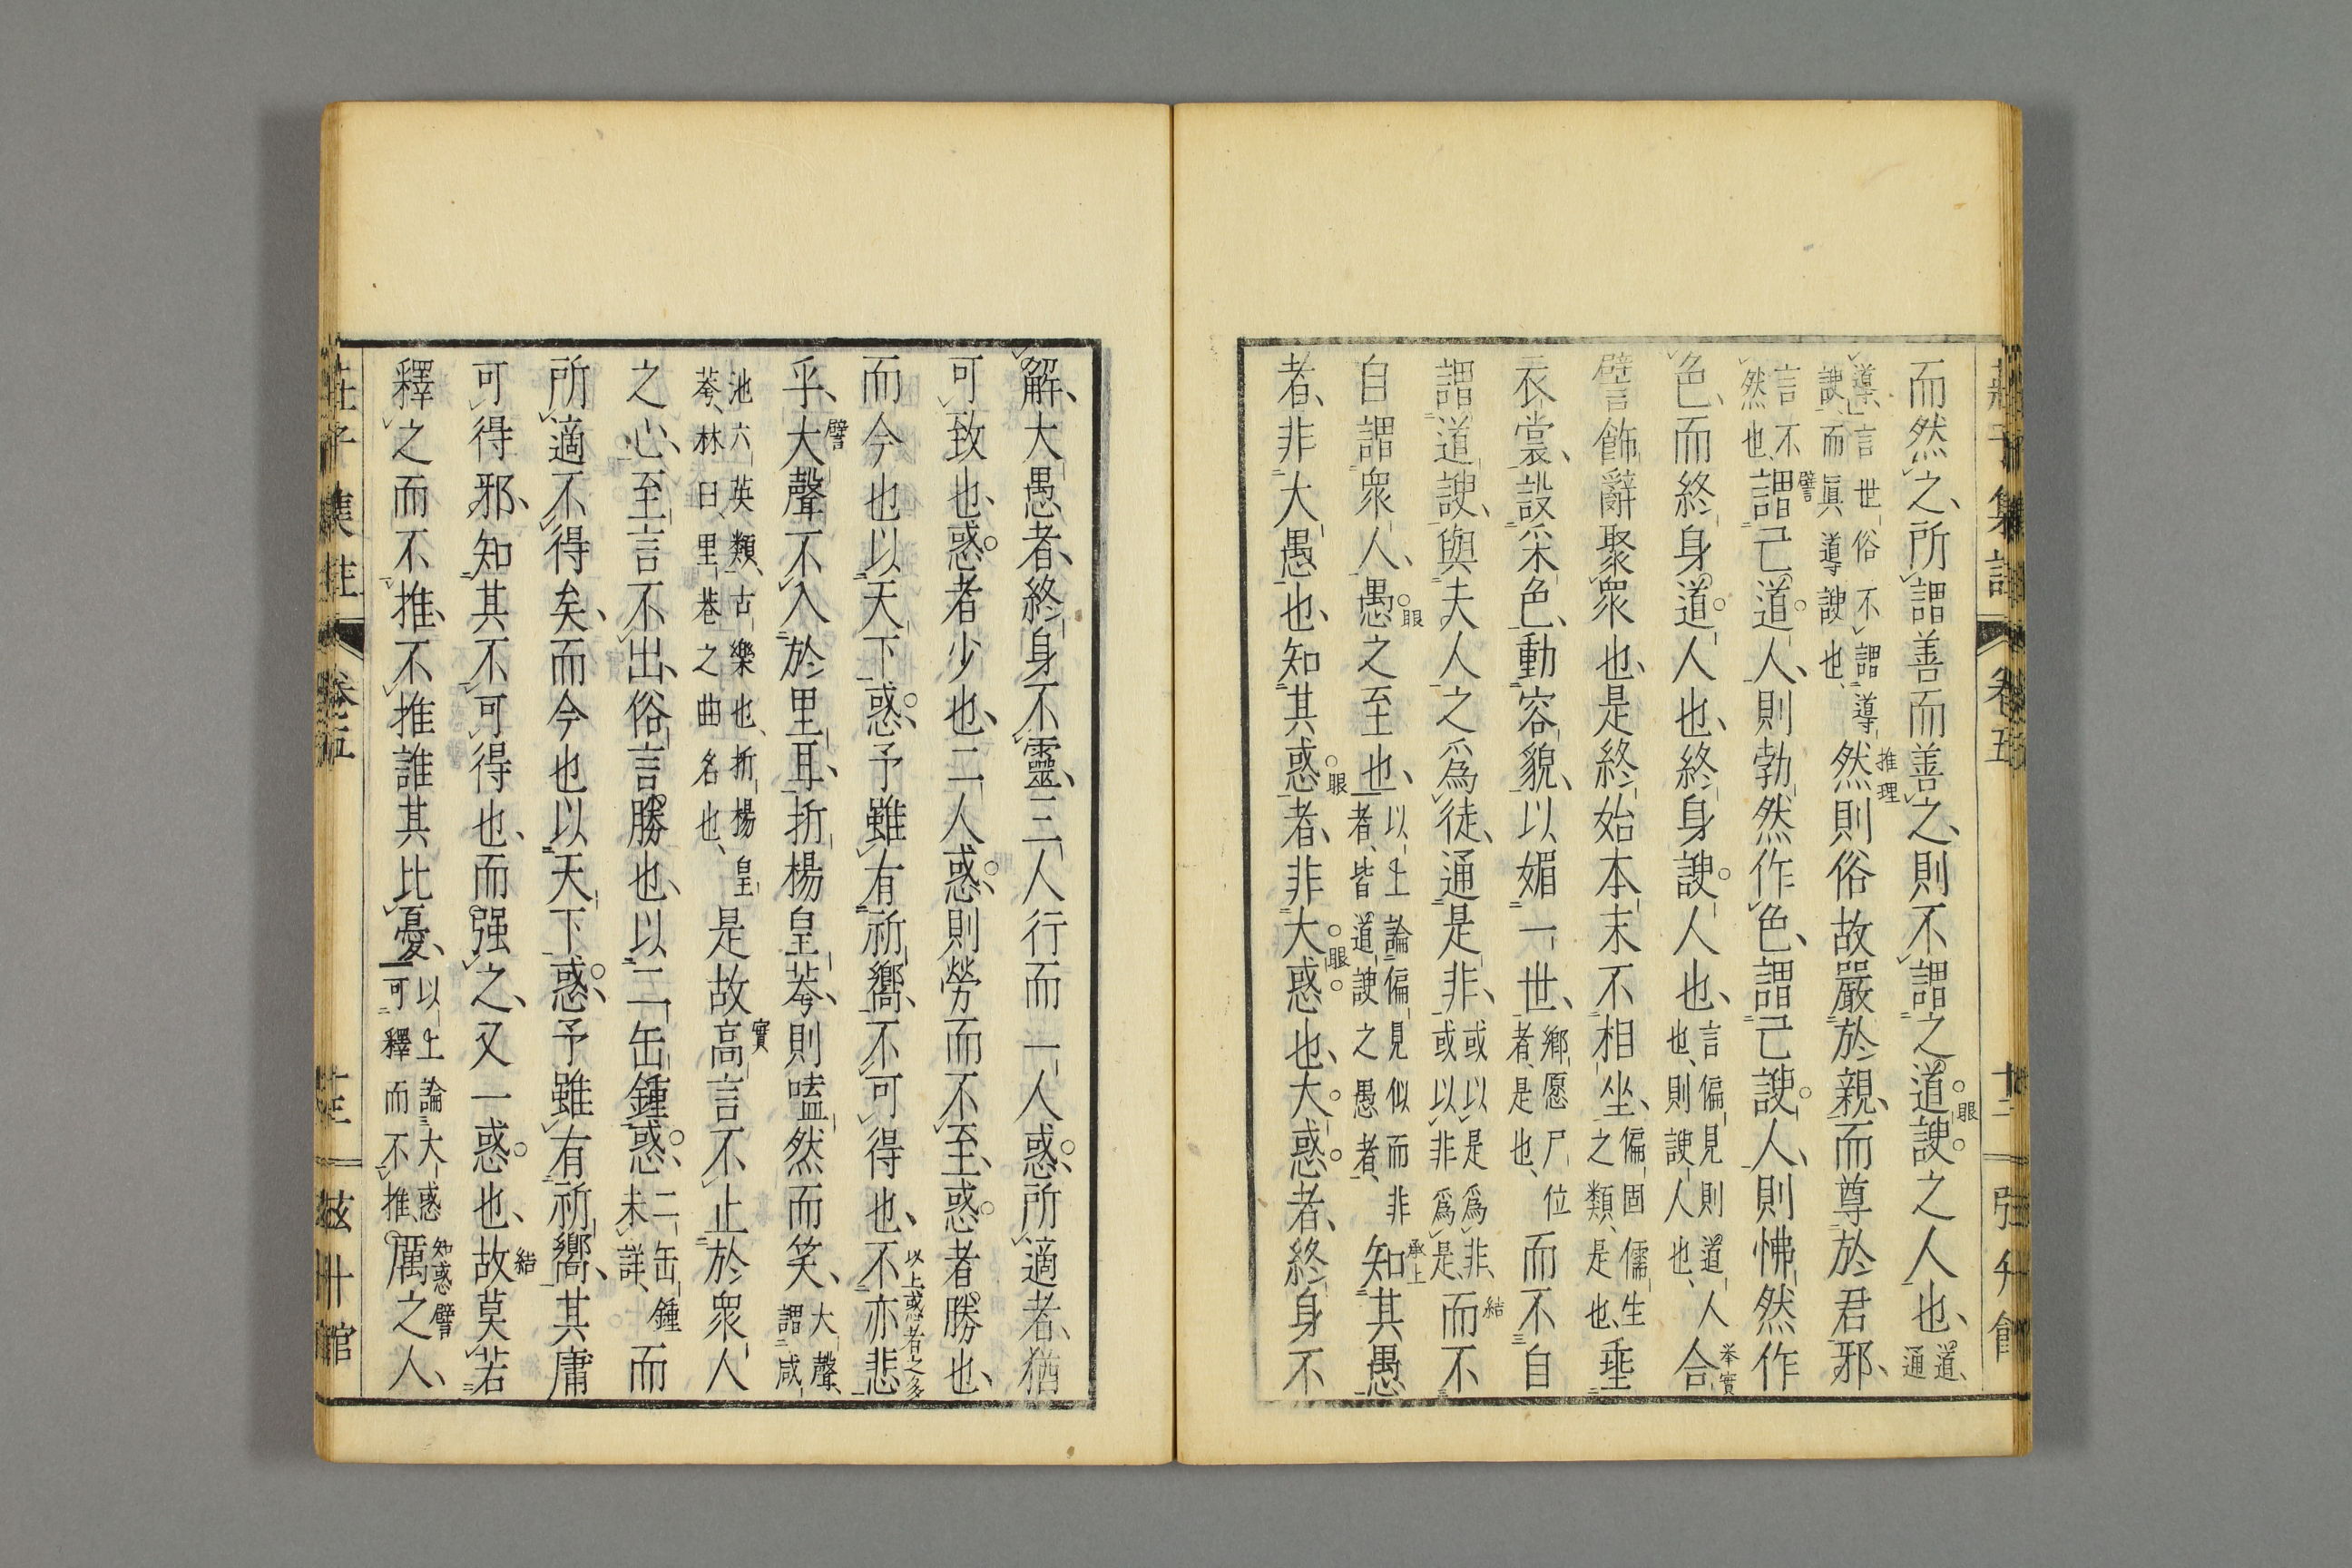 而然之、所謂善而善之、則不謂之道諛之人也、道、通
導、言世俗不謂導諛、而眞導諛也、然則俗故嚴於親、而尊於君邪、
推理
言不然也、謂己道人、則勃然作色、謂己諛人、則怫然作
譬
色、而終身道人也、終身諛人也、言偏見則道人也、則諛人也、合
举實
譬飾辭聚眾也、是終始本末不相坐、偏固儒生之類、是也、垂
衣裳、設采色、動容貌、以媚一世、鄉愿尸位者、是也、而不自
謂道諛、與夫人之爲徒、通是非、或以是爲非、或以非爲是、而不
結
自謂眾人、愚之至也、以上論偏見似而非者、皆道諛之愚者、知其愚
眼
承上
者、非大愚也、知其惑者、非大惑也、大惑者、終身不
眼
眼
解、大愚者、終身不靈、三人行而一人惑、所適者、猶
可致也、惑者少也、二人惑、則勞而不至、惑者勝也、
而今也以天下惑、予雖有祈嚮、不可得也、不亦悲
以上或惑者之多
乎、大聲不入於里耳、折楊皇荂、則嗑然而笑、大聲、謂咸
譬
池六英類、古樂也、折楊皇荂、林曰、里巷之曲名也、是故高言不止於眾人
實
之心、至言不出、俗言勝也、以二缶鍾惑、二缶鍾未詳、而
所適不得矣、而今也以天下惑、予雖有祈嚮、其庸
可得邪、知其不可得也、而强之、又一惑也、故莫若
結
釋之而不推、不推誰其比憂、以上論大惑可釋而不推、厲之人、
知惑譬
莊子集註 卷五